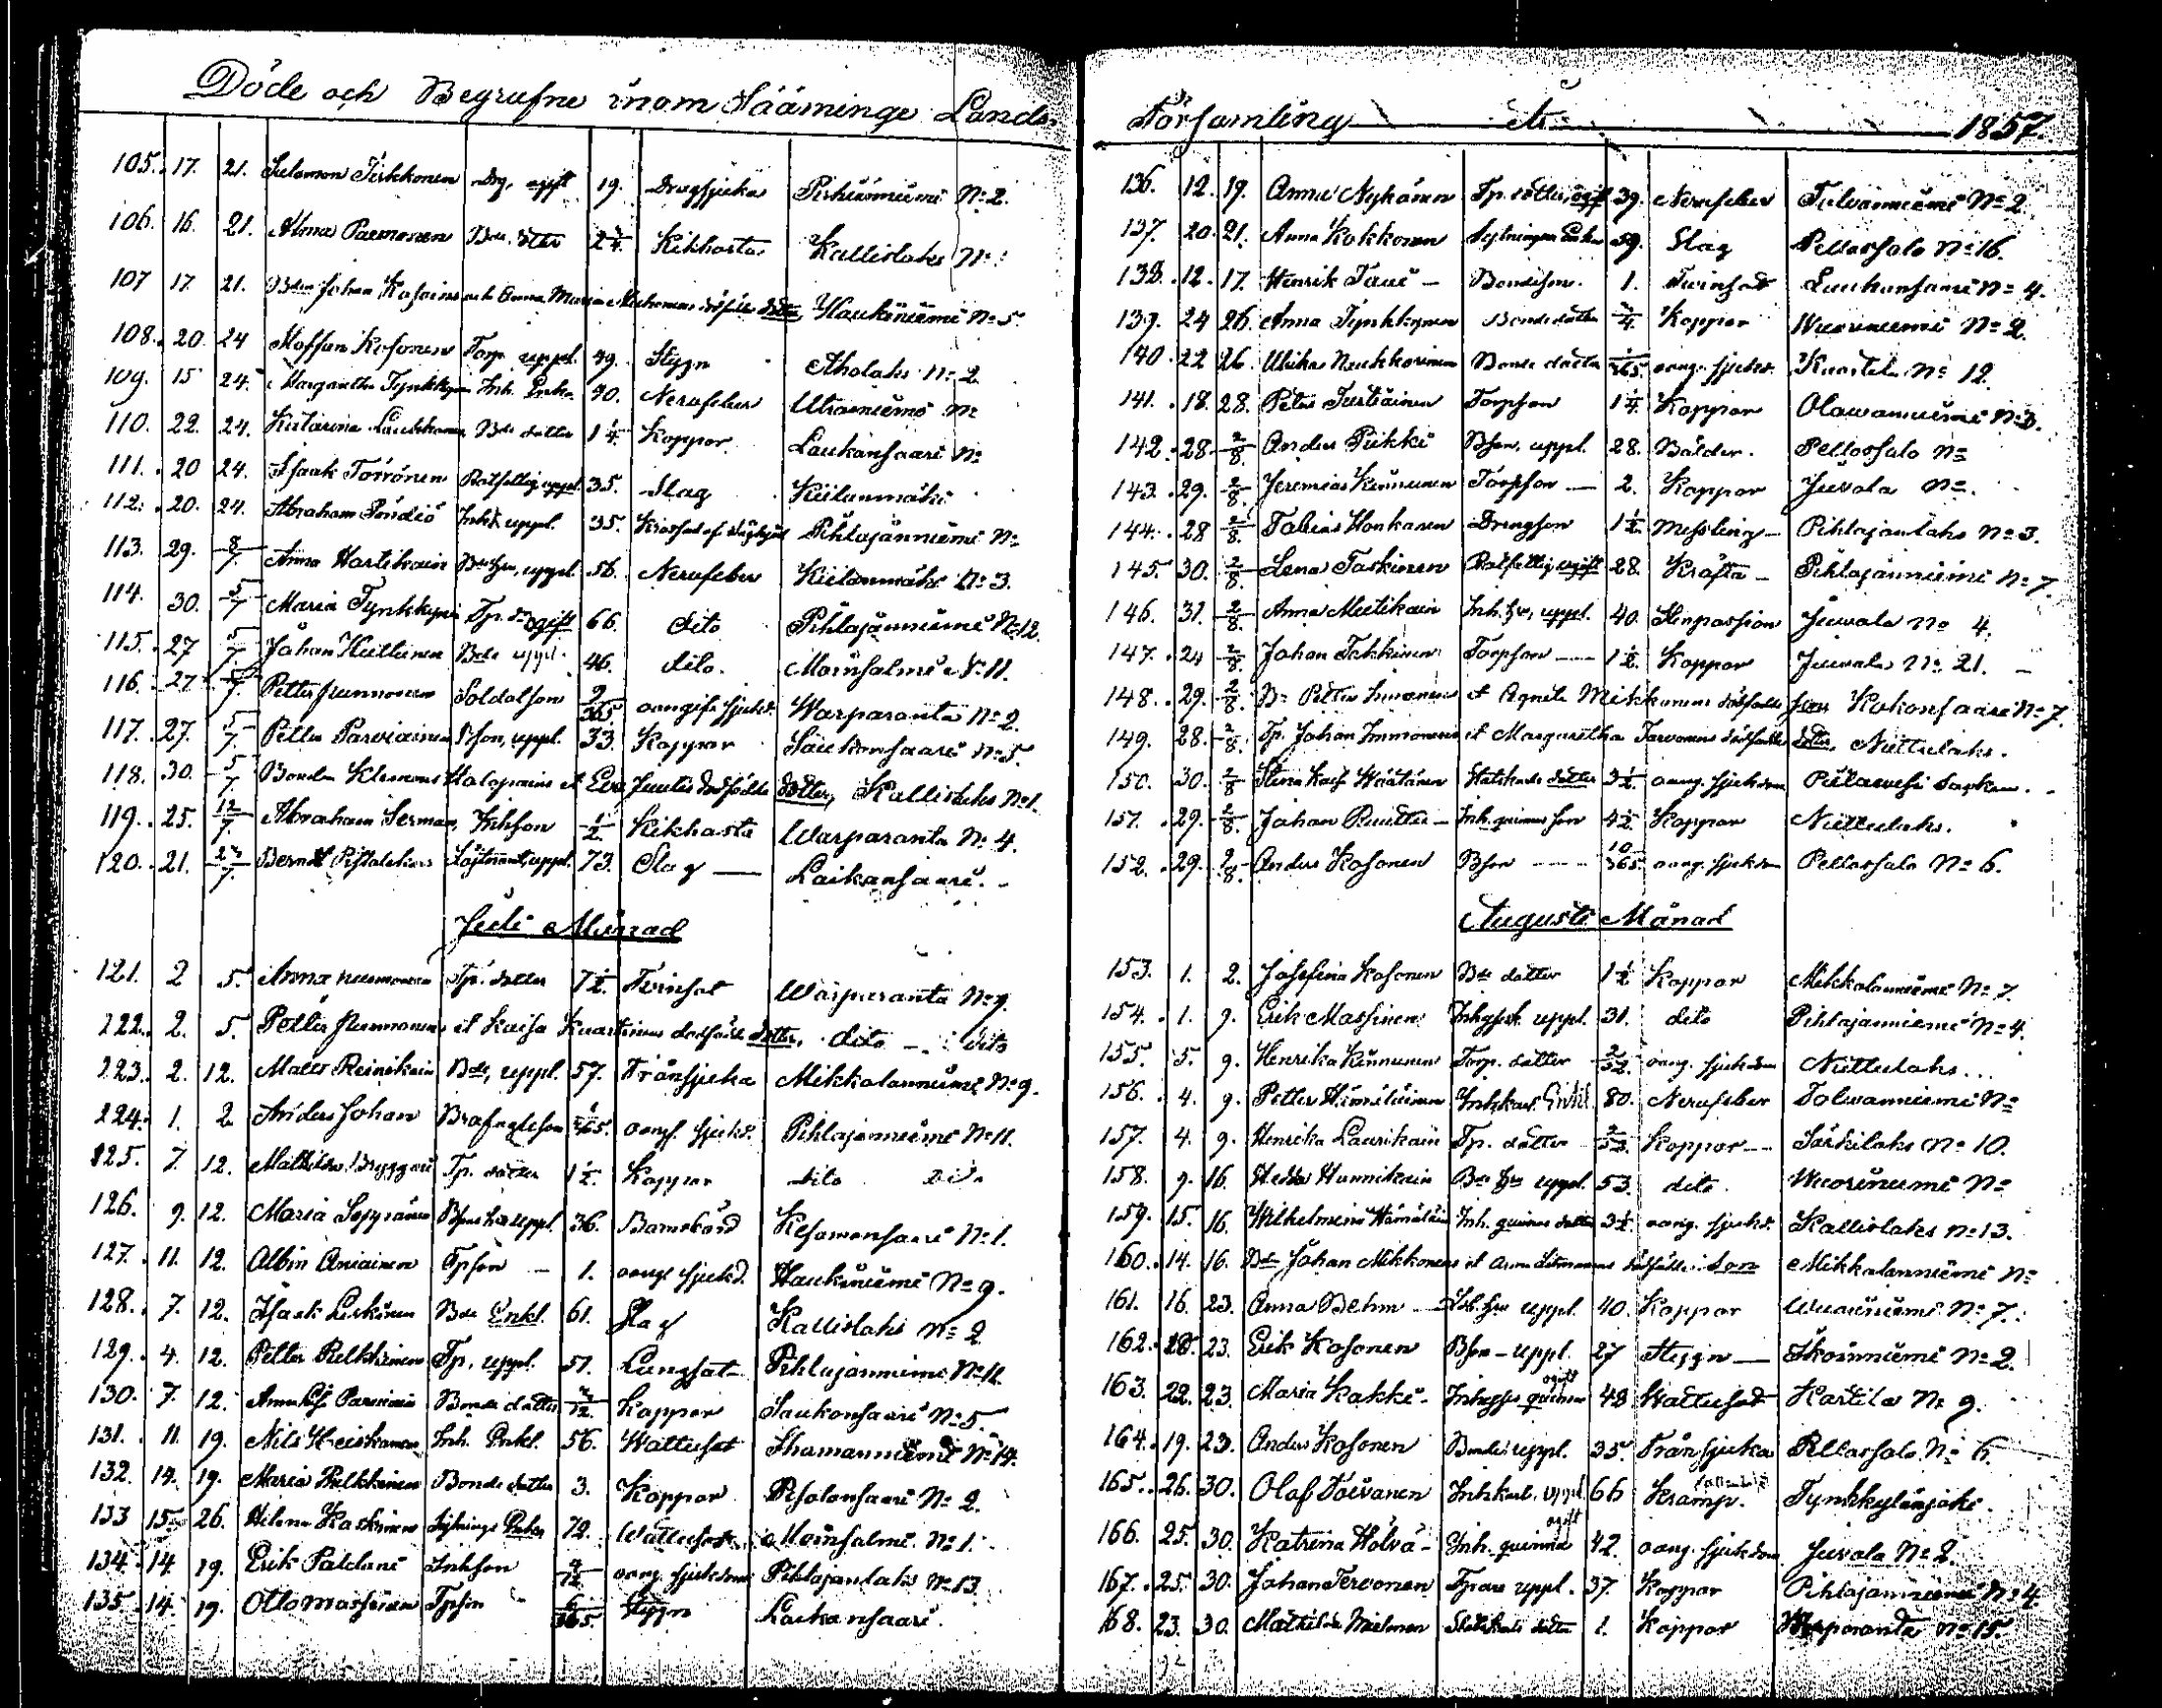 Döde och Begrafne inom Sääminge Lands
105. 17. 21. Salomon Tirkkonen Drg, ogift 19. Dragsjuka Pirhiänniemi No 2.
106. 16. 21. Alma Paemonen Bde. dotter 2 3/4 Kikhosta Kallislaks No
107 17 21. Bden Johan Kosoins och Anna Maria dödfödde dotter, Haukiniemi No 5.
108. 20. 24 Staffan Kosonen Torp. uppl. 49. Stygn Aholaks No 2.
109. 15 24. Margaretha Tynkkynen Inh. Enka 40. Nervfeber Utrasniemi No
110. 22. 24. Katarina Laukkanen Bde dotter 1 1/4 Koppor Laukansaari No
111. 20 24. Isaak Torrönen Rotfattig uppl. 35. Slag Kiilanmäki
112. 20. 24. Abraham Pöndiö Inhk uppl. 35. Pihlajänniemi No
113. 29. 8/7. Anna Hartikain Bde hu, uppl. 56. Nervfeber Kiilanmäki No 3.
114. 30. 5/7 Maria Tynkkynen Tp. dr ogift 66. dito Pihlajänniemi No 12.
115. 27 5/7. Johan Kiiltunen Bde uppl. 46. dito. Moinsalmi No 11.
116. 27 5/7. Petter Nunnonen Soldatson 2/365 oangifn sjukd. Warparanta No 2.
117. 27. 5/7. Petter Parviainen Bson, uppl. 33. Koppor Saukonsaari No 5.
118. 30. 5/7 Bonden Klemens Malopains et Eva Juutis dödfödde dotter, Kallislaks No 1.
119. 25. 12/7. Abraham Serman, Inhson 1/2 Kikhosta Warparanta No 4.
120. 21. 2?/7 Bernd Pistolekors Löjtnant, uppl. 73. Slag Laikansaari.
Juli Månad
121. 2 5. Anna Tp. dotter 7 1/2. Tvinsot Warparanta No 9.
122. 2. 5. Petter Nunnonens et Kaisa Kuartinens dödfödde dotter. dito dito
123. 2. 12. Mats Reinikain Bde, uppl. 57. Trånsjuka Mikkolanniemi No 9.
124. 1. 2 Anders Johan 1/365. oangf. sjukd. Pihlajänniemi No 11.
125. 7. 12. Mathilda Bryggari Tp. dotter 1 1/2. Koppor dito dito
126. 9. 12. Maria Soppränen Bhus uppl. 36. Barnsbörd Kesamonsaari No 1.
127. 11. 12. Albin Aniainen Tpson 1. oangf sjukd. Haukiniemi No 9.
128. 7. 12. Isaak Leskinen Bde Enkl. 61. Slag Kallislaks No 2
129. 4. 12. Petter Pulkkinen Tp. uppl. 51. Lungsot Pihlajanniemi No 11.
130. 7. 12. Anna Lis Parviain Bonde dotter /12. Koppor Saukonsaari No 5.
131. 11. 19. Nils Heiskanen Inh. Enkl. 56. Wattusot Ihamanniemi No 14.
132. 14. 19. Maria Pulkkinen Bonde dotter 3. Koppor Pesolansaari No 2.
133 15. 26. Helena Kaskinen Sytnings Enka 72. Wattusot. Moinsalmi. No 1.
134. 14. 19. Erik Patilani Inhson /12. oang. sjukdom Pihlajanlaks No 13.
135. 14. 19. Otto Massinen Tpson 6/365. Stygn Laukansaari.
Församling År 1857.
136. 12. 19. Anna Nykänen Tp. dotter, ogift 39. Nervfeber Tolvanniemi No 2.
137. 20. 21. Anna Kokkonen Sytnings Enka 59. Slag Pellossalo No 16.
138. 12. 17. Henrik Tavi Bondeson. 1. Tvinsot Laukansaari No 4.
139. 24 26. Anna Tynkkynen Bonde dotter 3/4. Koppor Wuoriniemi No 2.
140. 22 26. Ulrika Naukkarinen Bonde dotter 1/365. oang. sjukd. Kaartila No 12.
141. 18. 28. Petter Turtiainen Torpson 1 1/4. Koppor Olavanniemi No 3.
142. 28. 2/8. Anders Piikki Bson, uppl. 28. Bölder. Pellossalo No
143. 29. 2/8. Jeremias Kinnunen Torpson 2. Koppor Juvola No
144. 28 2/8. Tobias Honkanen Drengson 1 1/2 Messling Pihlajanlaks No 3.
145. 30. 2/8. Lena Taskinen Rotfattig ogift 28. Kräfta Pihlajänniemi No 7.
146. 31. 2/8. Anna Mietikain Inh. hu, uppl. 40. Stenpassion Juvola No 4.
147. 24 2/8. Johan Takkinen Torpson 1 1/2. Koppor Juvola No 21.
148. 29. 2/8. Bn Petter Immonen et Agneta Mikkonens dödfödde son Kokonsaari No 7.
149. 28. 2/8. Tp. Johan Immonens et Margaretha Tarvonens dödfödde dotter, Niittulaks.
150. 30. 2/8 Stina Kais Häätänen Statskarls dotter 3 1/2. oang. sjukdom Pielavesi socken.
151. 29. 2/8. Johan Ruuttu Inh. quinnas son 4 1/2. Koppor Niittulaks.
152. 29. 2/8. Anders Kosonen Bson 10/365. oang. sjukdom Pellossalo No 6.
Augusti Månad
153. 1. 2. Josefina Kosonen Bde dotter 1 1/2 Koppor Mikkolanniemi No 7.
154. 1. 9. Erik Massinen Inhyses uppl. 31. dito Pihlajanniemi No 4.
155. 5. 9. Henrika Kinnunen Torp. dotter 2/52. oang. sjukdom Niittulaks.
156. 4. 9. Petter Hämäläinen Inhkarl. Enkl. 80. Nervfeber Tolvanniemi No
157. 4. 9. Henrika Laurikain Tp. dotter Koppor Särkilaks No 10.
158. 9. 16. Hedda Hannikain Bde hu uppl. 53. dito. Wuoriniemi No
159. 15. 16. Wilhelmina Hämäläin Inh. quinnas dotter 3 1/2. oang. sjukd. Kallislaks No 13.
160. 14. 16. Bde Johan Mikkonens et Anna dödfödde son Mikkolanniemi No
161. 16. 23. Anna Behm hu uppl. 40. Koppor Wuoriniemi No 7.
162. 18. 23. Erik Kosonen Bson uppl. 27 Stygn Ikoinniemi No 2.
163. 22. 23. Maria Kakki Inhyses quinna ogift 48 Wattusot Kartila No 9.
164. 19. 23. Anders Kosonen Bonde uppl. 35. Trånsjuka Pellossalo No 6.
165. 26. 30. Olof Toivanen Inhkarl. uppl 66 Kramp. Tynkkylänjoki.
166. 25. 30. Katrina Hölvä Inh. quinna ogift 42. oang. sjukdom Juvola No 2.
167. 25. 30. Johan Tervonen Tpare uppl. 37. Koppor Pihlajanniemi No 4.
168. 23. 30. Mathilda Mielonen Statskarls dotter 1. Koppor Warparanta No 15.